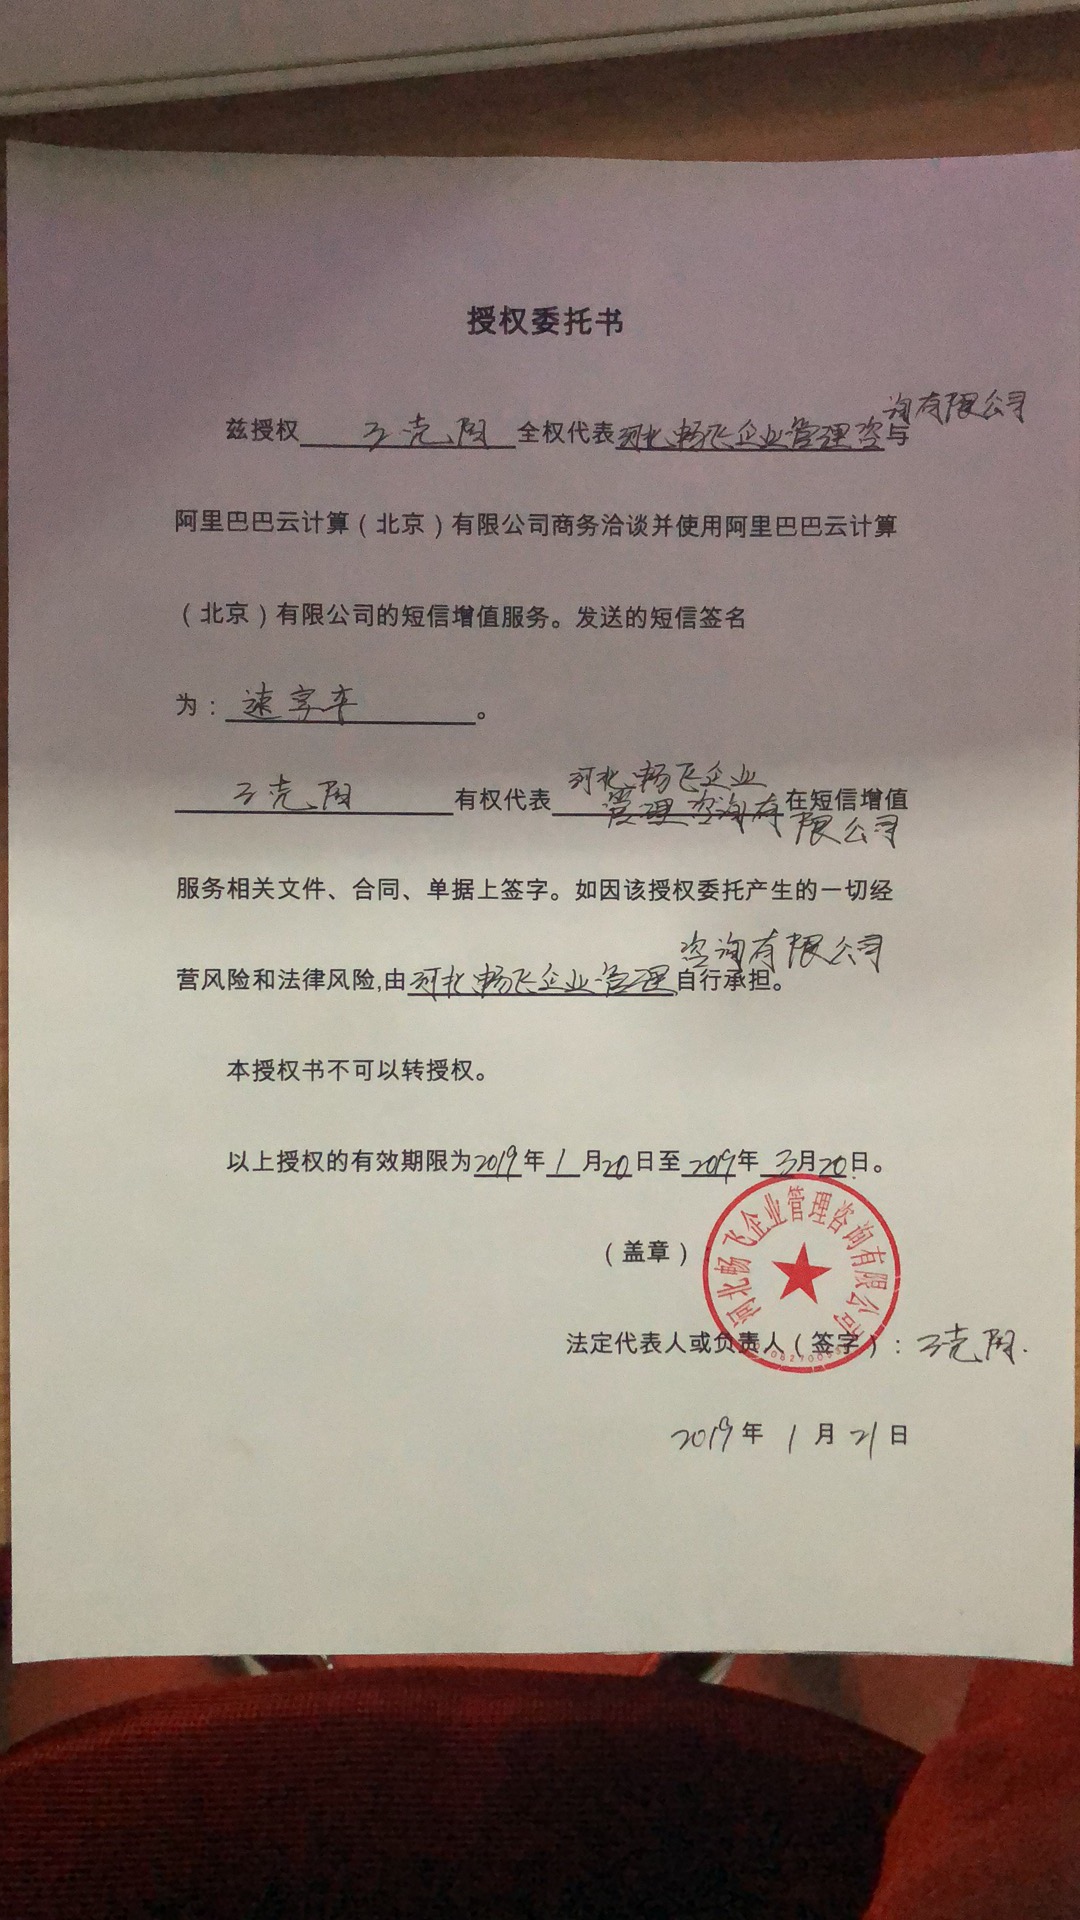 授权委托书
兹授权 王克周 全权代表河北畅飞企业管理咨询有限公司与
阿里巴巴云计算（北京）有限公司商务洽谈并使用阿里巴巴云计算
（北京）有限公司的短信增值服务。发送的短信签名
为：速享车。
王克周 有权代表 河北畅飞企业管理咨询有限公司 在短信增值
服务相关文件、合同、单据上签字。如因该授权委托产生的一切经
营风险和法律风险,由河北畅飞企业管理咨询有限公司自行承担。
本授权书不可以转授权。
以上授权的有效期限为2019年1月20日至2019年3月20日。
（盖章）
河北畅飞企业管理咨询有限公司
法定代表人或负责人（签字）：王克周.
2019年 1月21日